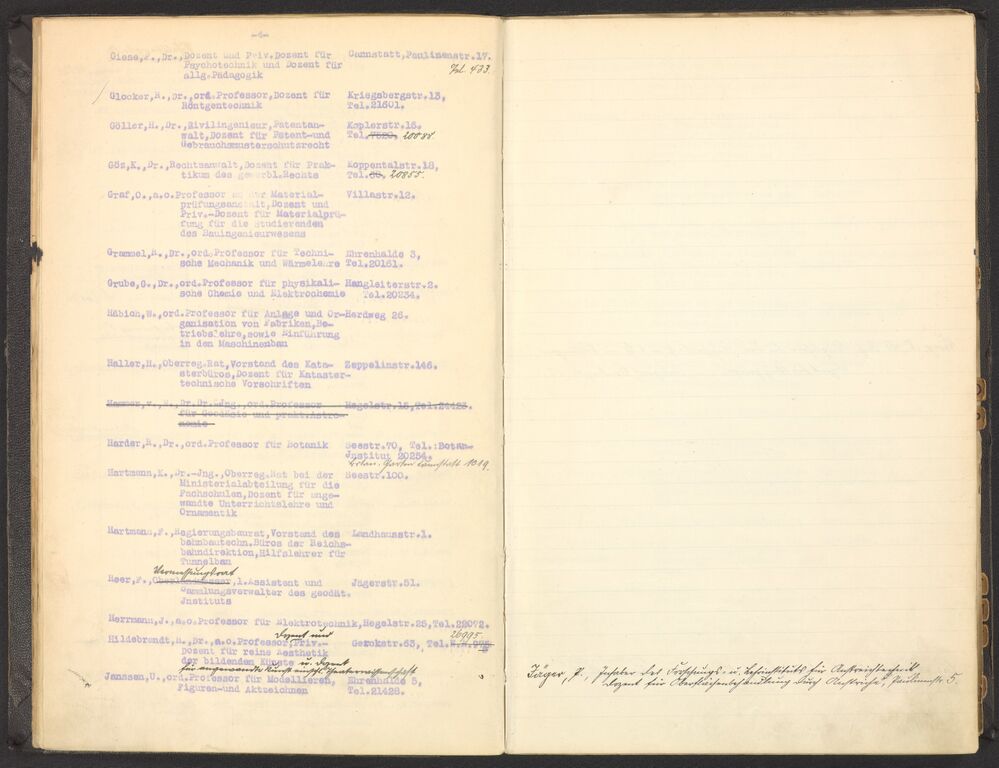 -4-
Giese,F.,Dr.,Dozent und Priv.Dozent für Cannstatt,Paulinenstr.17.
Psychotechnik und Dozent für Tel. 433
allg.Pädagogik
Glocker,R.,Dr.,ord.Professor,Dozent für Kriegsbergstr.15,
Röntgentechnik Tel.21601.
Göller,H.,Dr.,Zivilingenieur,Patentan- Keplerstr.16.
walt,Dozent für Patent-und Tel. 20084
Gebrauchsmusterschutzrecht
Göz,K.,Dr.,Rechtsanwalt,Dozent für Prak- Koppentalstr.18,
tikum des gewerbl.Rechts Tel. 20855.
Graf,O.,a.o.Professor an der Material- Villastr.12.
prüfungsanstalt,Dozent und
Priv.-Dozent für Materialprü-
fung für die Studierenden
des Bauingenieurwesens
Grammel,R.,Dr.,ord.Professor für Techni- Ehrenhalde 3,
sche Mechanik und Wärmelehre Tel.20161.
Grube,G.,Dr.,ord.Professor für physikali- Hangleiterstr.2.
sche Chemie und Elektrochemie Tel.20234.
Häbich,W.,ord.Professor für Anlage und Or-Herdweg 26.
ganisation von Fabriken,Be-
triebslehre,sowie Einführung
in den Maschinenbau
Haller,H.,Oberreg.Rat,Vorstand des Kata- Zeppelinstr.146.
sterbüros,Dozent für Kataster-
technische Vorschriften
Hammer,v.,E.,Dr.Dr.-Jng.,ord.Professor Hegelstr.15,Tel.24423.
für Geodäsie und prakt.Astro-
nomie
Harder,R.,Dr.,ord.Professor für Botanik Seestr.70, Tel.:Botan-
Jnstitut 20234.
Botan. Garten Cannstatt 1019.
Hartmann,K.,Dr.-Jng.,Oberreg.Rat bei der Seestr.100.
Ministerialabteilung für die
Fachschulen,Dozent für ange-
wandte Unterrichtslehre und
Ornamentik
Hartmann,F.,Regierungsbaurat,Vorstand des Landhausstr.1.
bahnbautechn.Büros der Reichs-
bahndirektion,Hilfslehrer für
Tunnelbau
Vermessungsrat
Heer,F., ,1.Assistent und Jägerstr.51.
Sammlungsverwalter des geodät.
Jnstituts
Herrmann,J.,a.o.Professor für Elektrotechnik,Hegelstr.25,Tel.22072.
Dozent und 26995
Hildebrandt,H.,Dr.,a.o.Professor,Priv.- Gerokstr.63, Tel.
Dozent für reine Aesthetik
der bildenden Künste u. Dozent
für angewandte Kunst
Janssen,U.,ord.Professor für Modellieren, Ehrenhalde 5,
Figuren-und Aktzeichnen Tel.21428.
Jäger, P., Inhaber des Forschungs- u. Lehrinstituts für Anstrichtechnik
Dozent für Oberflächenbehandlung durch Anstriche, Paulinenstr. 5.